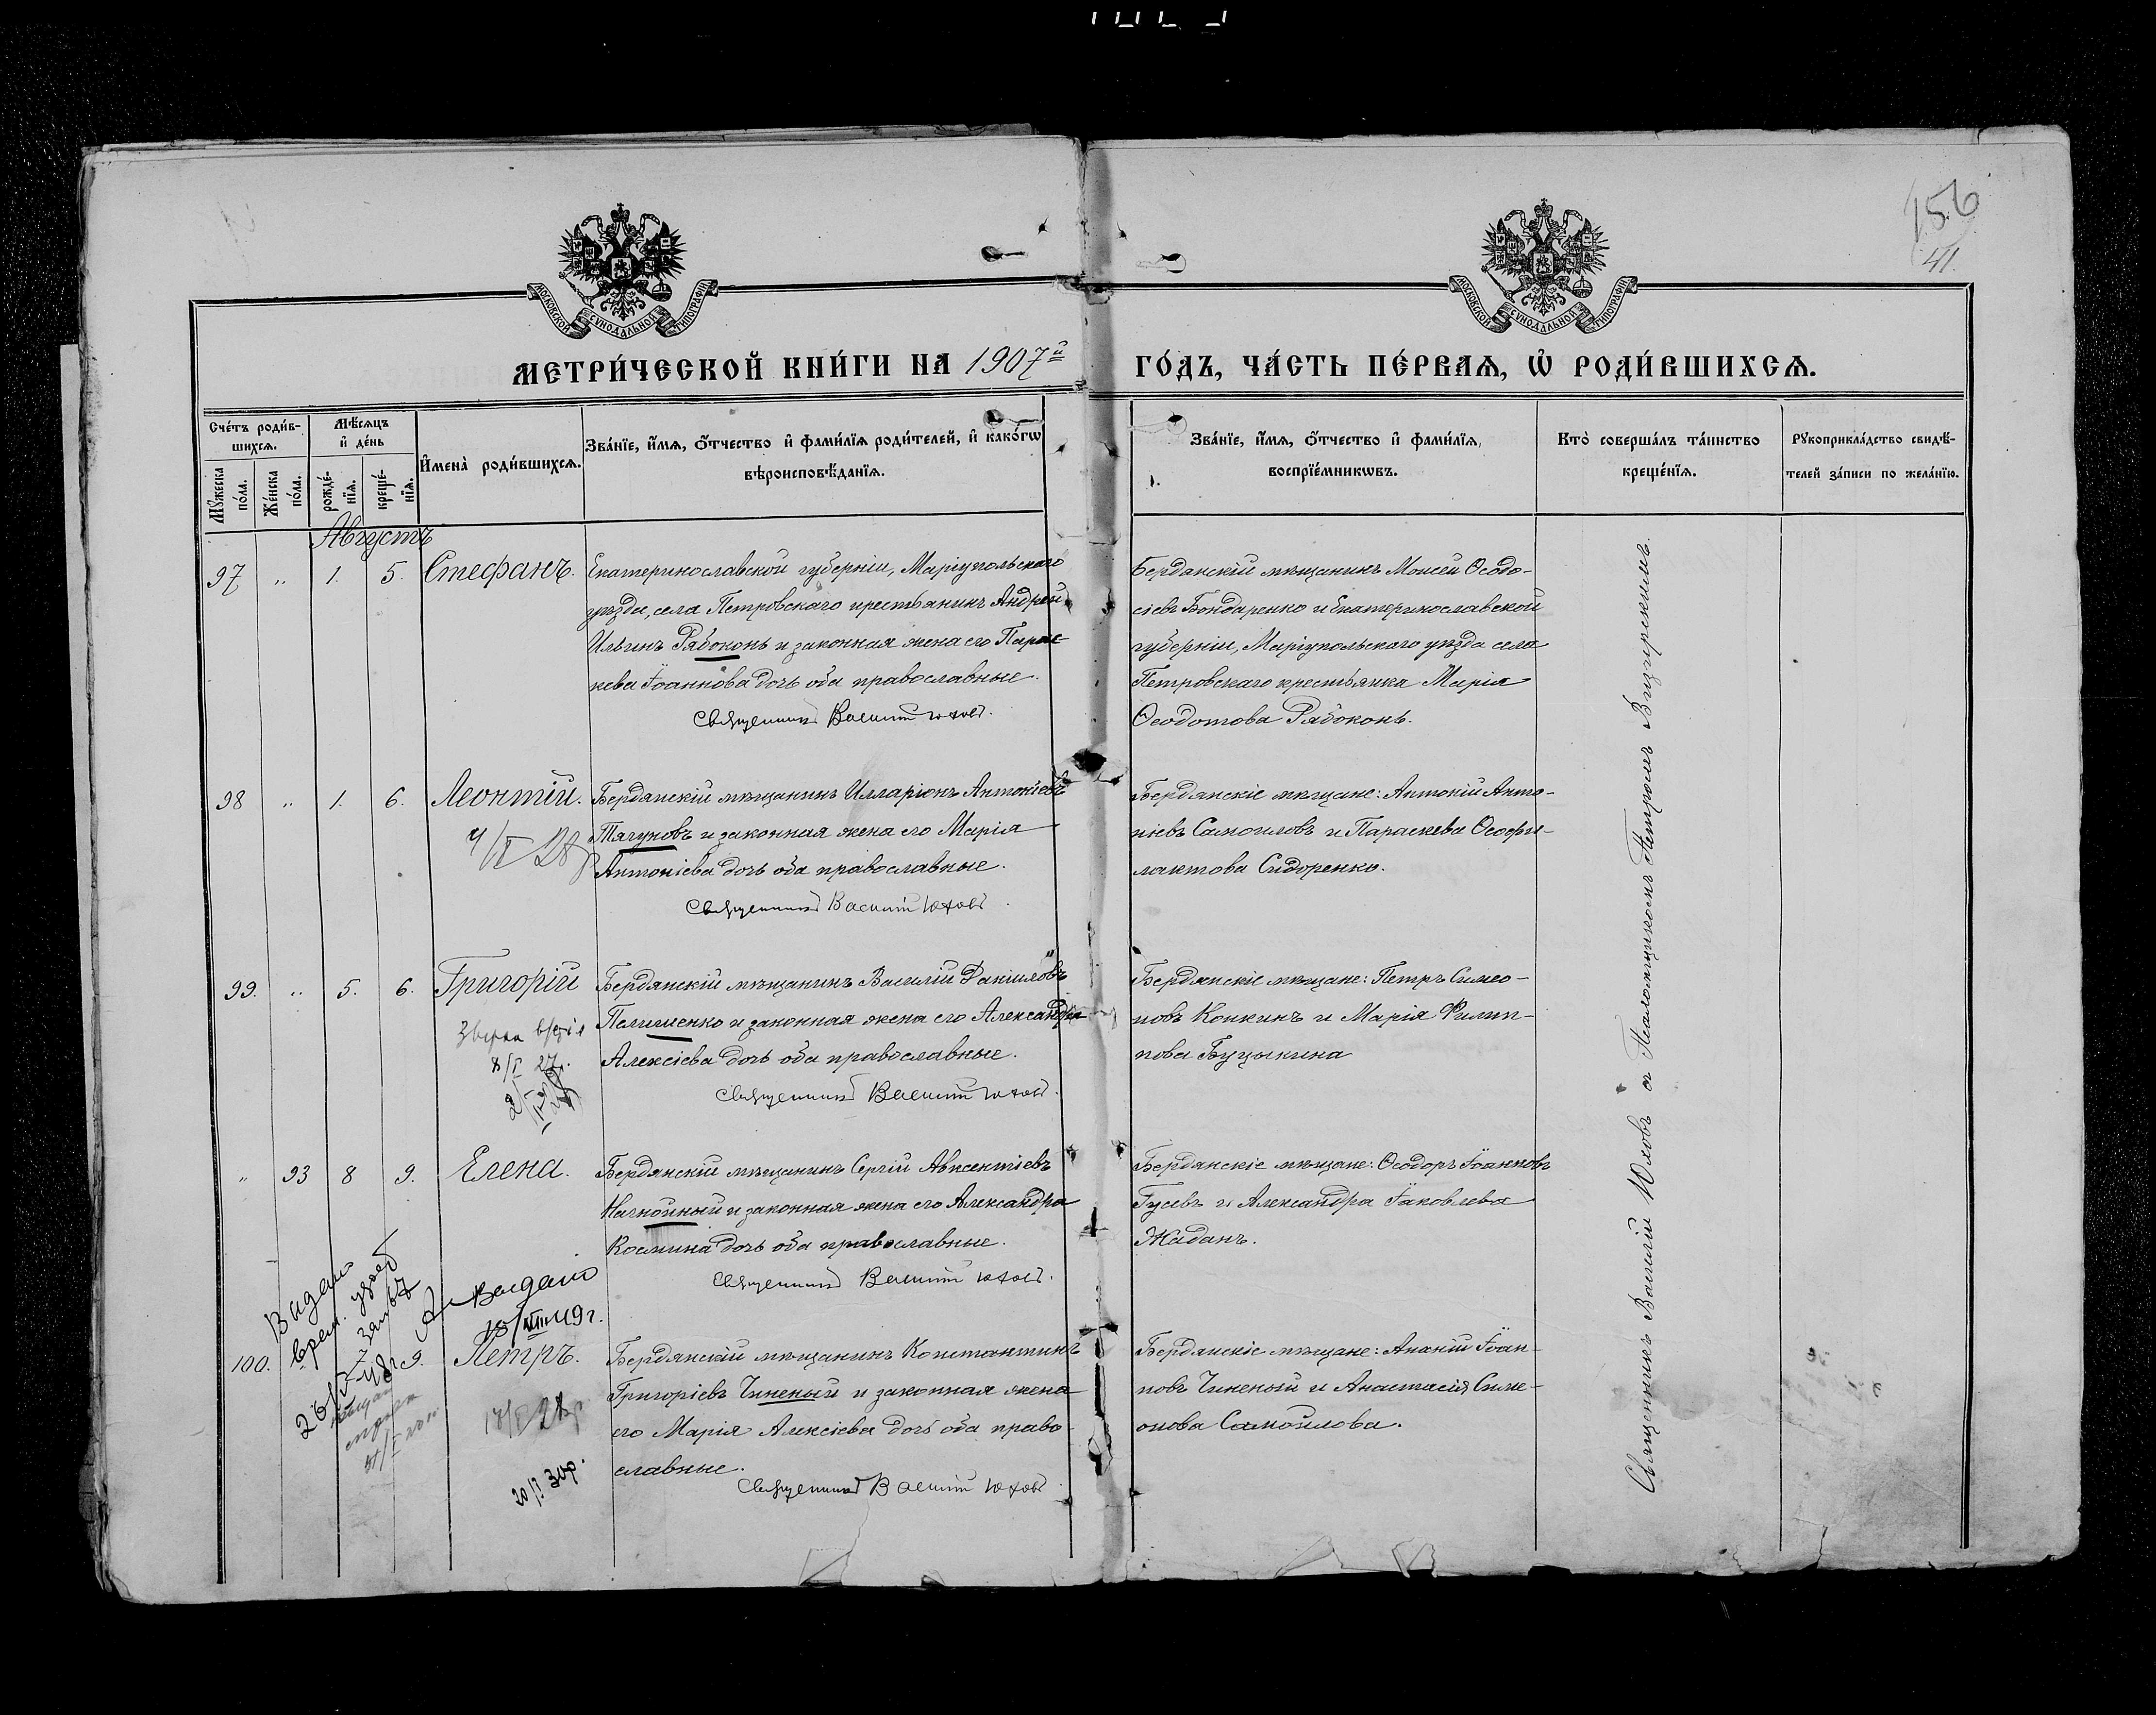 156
41.
МОСКОВСКОЙ СУНОДАЛЬНОЙ ТИПОГРАФІИ
МОСКОВСКОЙ СУНОДАЛЬНОЙ ТИПОГРАФІИ
МЕТРИ́ЧЕСКОЙ КНИ́ГИ НА 1907й ГО́ДЪ, ЧА́СТЬ ПЕ́РВАѦ, Ѡ РОДИ́ВШИХСѦ.
Сче́тъ роди́в-
шихсѧ.
Мꙋжеска по́ла.
Же́нска по́ла.
Мѣ́сѧцъ и де́нь
рожде́-
нїѧ.
креще́-
нїѧ.
И҆мена̀ роди́вшихсѧ.
Зва́нїе, и҆́мѧ, ѻ҆́тчество и҆ фами́лїѧ роди́телей, и҆ како́гѡ
вѣроисповѣ́данїѧ.
Зва́нїе, и҆́мѧ, ѻ҆́тчество и҆ фами́лїѧ,
воспрїе́мникѡвъ.
Кто̀ соверша́лъ та́инство
креще́нїѧ.
Рꙋкоприкла́дство свидѣ́-
телей за́писи по жела́нїю.
Августъ
97 „ 1. 5. Стефанъ.
Екатеринославской губерніи, Маріупольскаго
уѣзда, села Петровскаго крестьянинъ Андрей
Ильинъ Рябоконь и законная жена его Парас-
кева Іоаннова дочь оба православные.
Священникъ Василій Юховъ.
Бердянскій мѣщанинъ Моисей Ѳеодо-
сіевъ Бондаренко и Екатеринославской
губерніи, Маріупольскаго уѣзда села
Петровскаго крестьянка Марія
Ѳеодотова Рябоконь.
98 „ 1. 6. Леонтій.
Бердянскій мѣщанинъ Илларіонъ Антоніевъ
Тягуновъ и законная жена его Марія
Антоніева дочь оба православные.
Священникъ Василій Юховъ.
Бердянскіе мѣщане: Антоній Анто-
ніевъ Самоиловъ и Параскева Ѳеофи-
лактова Сидоренко.
99. „ 5. 6. Григорій
Бердянскій мѣщанинъ Василій Даніиловъ
Пелишенко и законная жена его Александра
Алексіева дочь оба православные.
Священникъ Василій Юховъ.
Бердянскіе мѣщане: Петръ Симео-
новъ Конкинъ и Марія Филип-
пова Буцыкина
„ 93 8 9. Елена.
Бердянскій мѣщанинъ Сергій Авксентіевъ
Нагнойный и законная жена его Александра
Космина дочь оба православные.
Священникъ Василій Юховъ.
Бердянскіе мѣщане: Ѳеодоръ Іоанновъ
Гусевъ и Александра Іаковлева
Жаданъ.
Выдано
18/VIII 49 г.
100. 9. Петръ.
Бердянскій мѣщанинъ Константинъ
Григоріевъ Чиненый и законная жена
его Марія Алексіева дочь оба право-
славные.
Священникъ Василій Юховъ
Бердянскіе мѣщане: Ананій Іоан-
новъ Чиненый и Анастасія Симе-
онова Самойлова.
Священникъ Василій Юховъ и Псаломщикомъ Петромъ